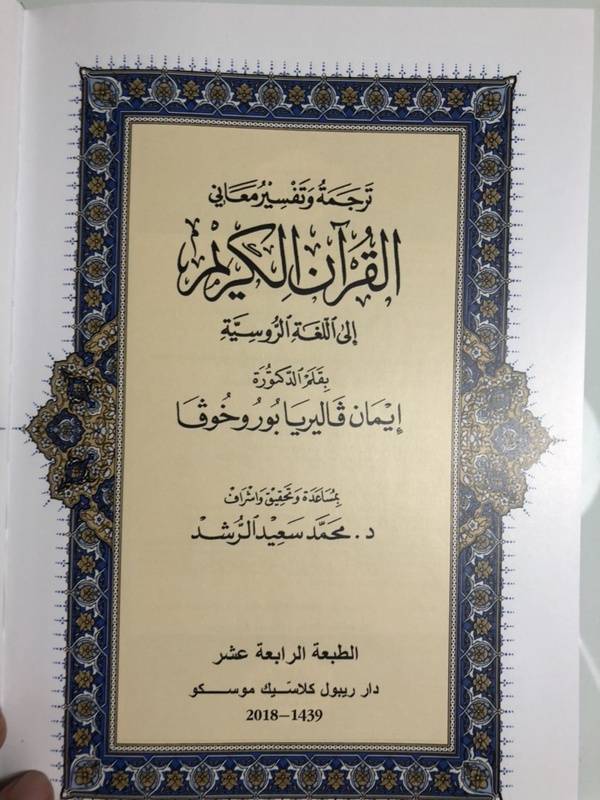 تَرجَمَةُ وَتَفْسِيْرُ مَعَاني
القُرْآنِ الكَرِيْمِ
إِلىٰ ٱللُّغَةِ ٱلرُّوسِيَّةِ
بِقَلَمِ ٱلدّكتُورَة
إيْمَان ڤاليريا بُورُوخُوڤَا
بِمُسَاعَدَة وَتَحْقِيق وَاشْرَاف
د. محمَّد سَعِيد ٱلرُّشد
الطبعة الرابعة عشر
دار ريبول كلاسّيك موسكو
2018–1439